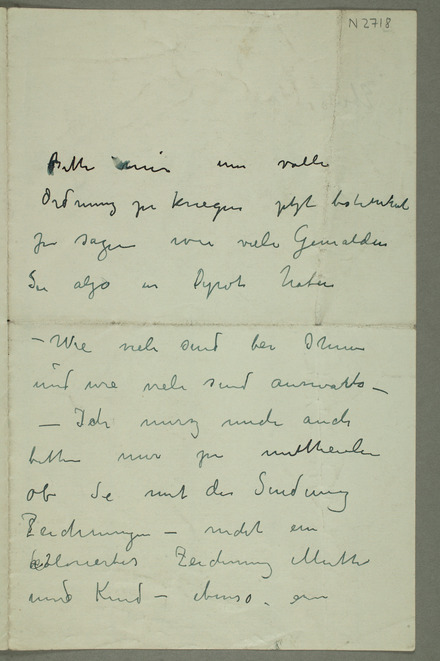 N2718
Bitte mir um volle
Ordnung zu kriegen jetzt
zu sagen wie viele Gemälden
Sie also en Depot haben
– Wie viele sind bei Ihnen
und wie viele sind auswärts –
– Ich muss mich auch
bitten mir zu mittheilen
ob Sie mit der Sendung
Zeichnungen – nicht ein
coloriertes Zeichnung Mutter
und Kind – ebenso ein